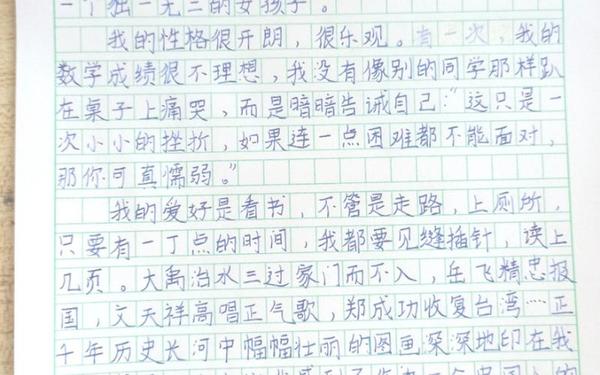 一个独一无二的女孩子。
我的性格很开朗，很乐观。有一次，我的
数学成绩很不理想，我没有像别的同学那样趴
在桌子上痛哭，而是暗暗告诫自己：“这只是一
次小小的挫折，如果连一点困难都不能面对，
那你可真懦弱。”
我的爱好是看书，不管是走路，上厕所，
只要有一丁点的时间，我都要见缝插针，读上
几页。大禹治水三过家门而不入，岳飞精忠报
国，文天祥高唱正气歌，郑成功收复台湾……五
千年历史长河中幅幅壮丽的图画深深地印在我